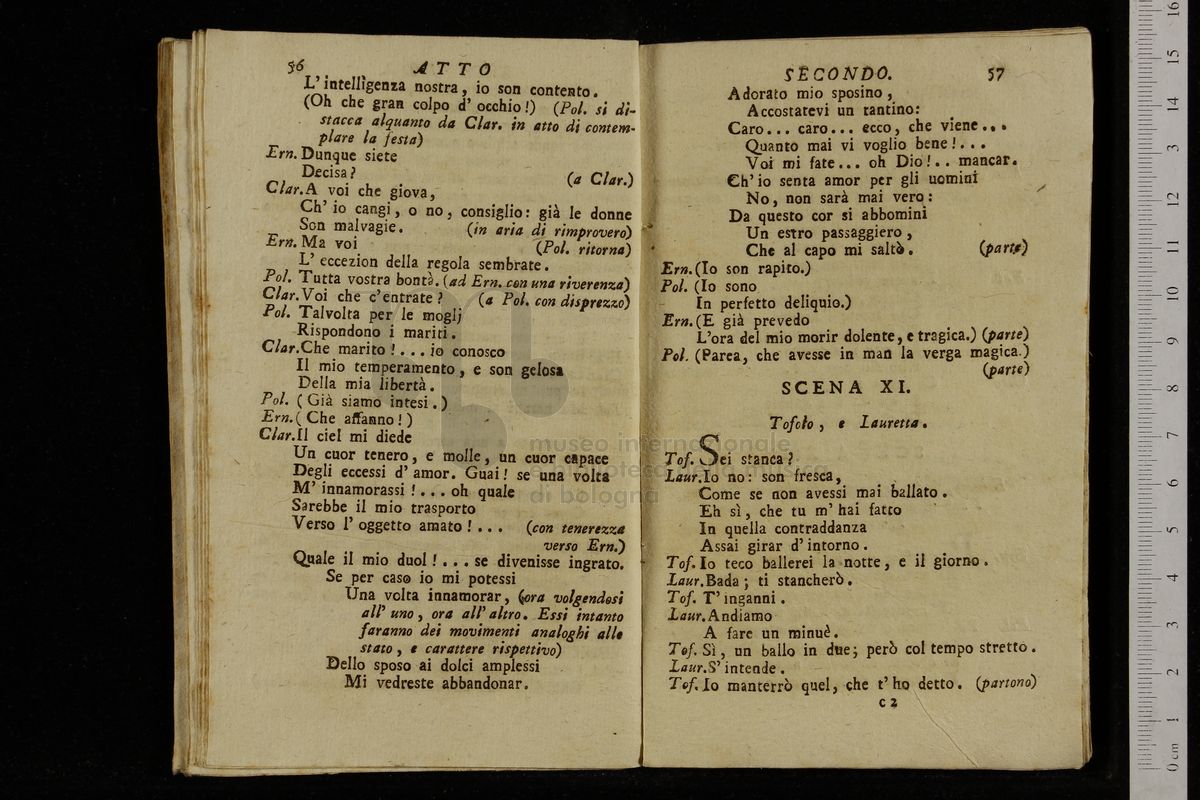 56 ATTO
L' intelligenza nostra, io son contento.
(Oh che gran colpo d' occhio!) (Pol. si di-
stacca alquanto da Clar. in atto di contem-
plare la festa)
Ern. Dunque siete
Decisa? (a Clar.)
Clar. A voi che giova,
Ch' io cangi, o no, consiglio: già le donne
Son malvagie. (in aria di rimprovero)
Ern. Ma voi (Pol. ritorna)
L' eccezion della regola sembrate.
Pol. Tutta vostra bontà. (ad Ern. con una riverenza)
Clar. Voi che c'entrate? (a Pol. con disprezzo)
Pol. Talvolta per le moglj
Rispondono i mariti.
Clar. Che marito!... io conosco
Il mio temperamento, e son gelosa
Della mia libertà.
Pol. (Già siamo intesi.)
Ern. (Che affanno!)
Clar. Il ciel mi diede
Un cuor tenero, e molle, un cuor capace
Degli eccessi d' amor. Guai! se una volta
M' innamorassi!... oh quale
Sarebbe il mio trasporto
Verso l' oggetto amato!... (con tenerezza
verso Ern.)
Quale il mio duol!... se divenisse ingrato.
Se per caso io mi potessi
Una volta innamorar, (ora volgendosi
all' uno, ora all' altro. Essi intanto
faranno dei movimenti analoghi allo
stato, e carattere rispettivo)
Dello sposo ai dolci amplessi
Mi vedreste abbandonar.
SECONDO. 57
Adorato mio sposino,
Accostatevi un tantino:
Caro... caro... ecco, che viene...
Quanto mai vi voglio bene!...
Voi mi fate... oh Dio!.. mancar.
Ch' io senta amor per gli uomini
No, non sarà mai vero:
Da questo cor si abbomini
Un estro passaggiero,
Che al capo mi saltò. (parte)
Ern. (Io son rapito.)
Pol. (Io sono
In perfetto deliquio.)
Ern. (E già prevedo
L'ora del mio morir dolente, e tragica.) (parte)
Pol. (Parea, che avesse in man la verga magica.)
(parte)
SCENA XI.
Tofolo, e Lauretta.
Tof. Sei stanca?
Laur. Io no: son fresca,
Come se non avessi mai ballato.
Eh sì, che tu m' hai fatto
In quella contraddanza
Assai girar d' intorno.
Tof. Io teco ballerei la notte, e il giorno.
Laur. Bada; ti stancherò.
Tof. T' inganni.
Laur. Andiamo
A fare un minuè.
Tof. Sì, un ballo in due; però col tempo stretto.
Laur. S' intende.
Tof. Io manterrò quel, che t' ho detto. (partono)
C 2
museo internazionale
e biblioteca della musica
di bologna
0 cm 1 2 3 4 5 6 7 8 9 10 11 12 13 14 15 16